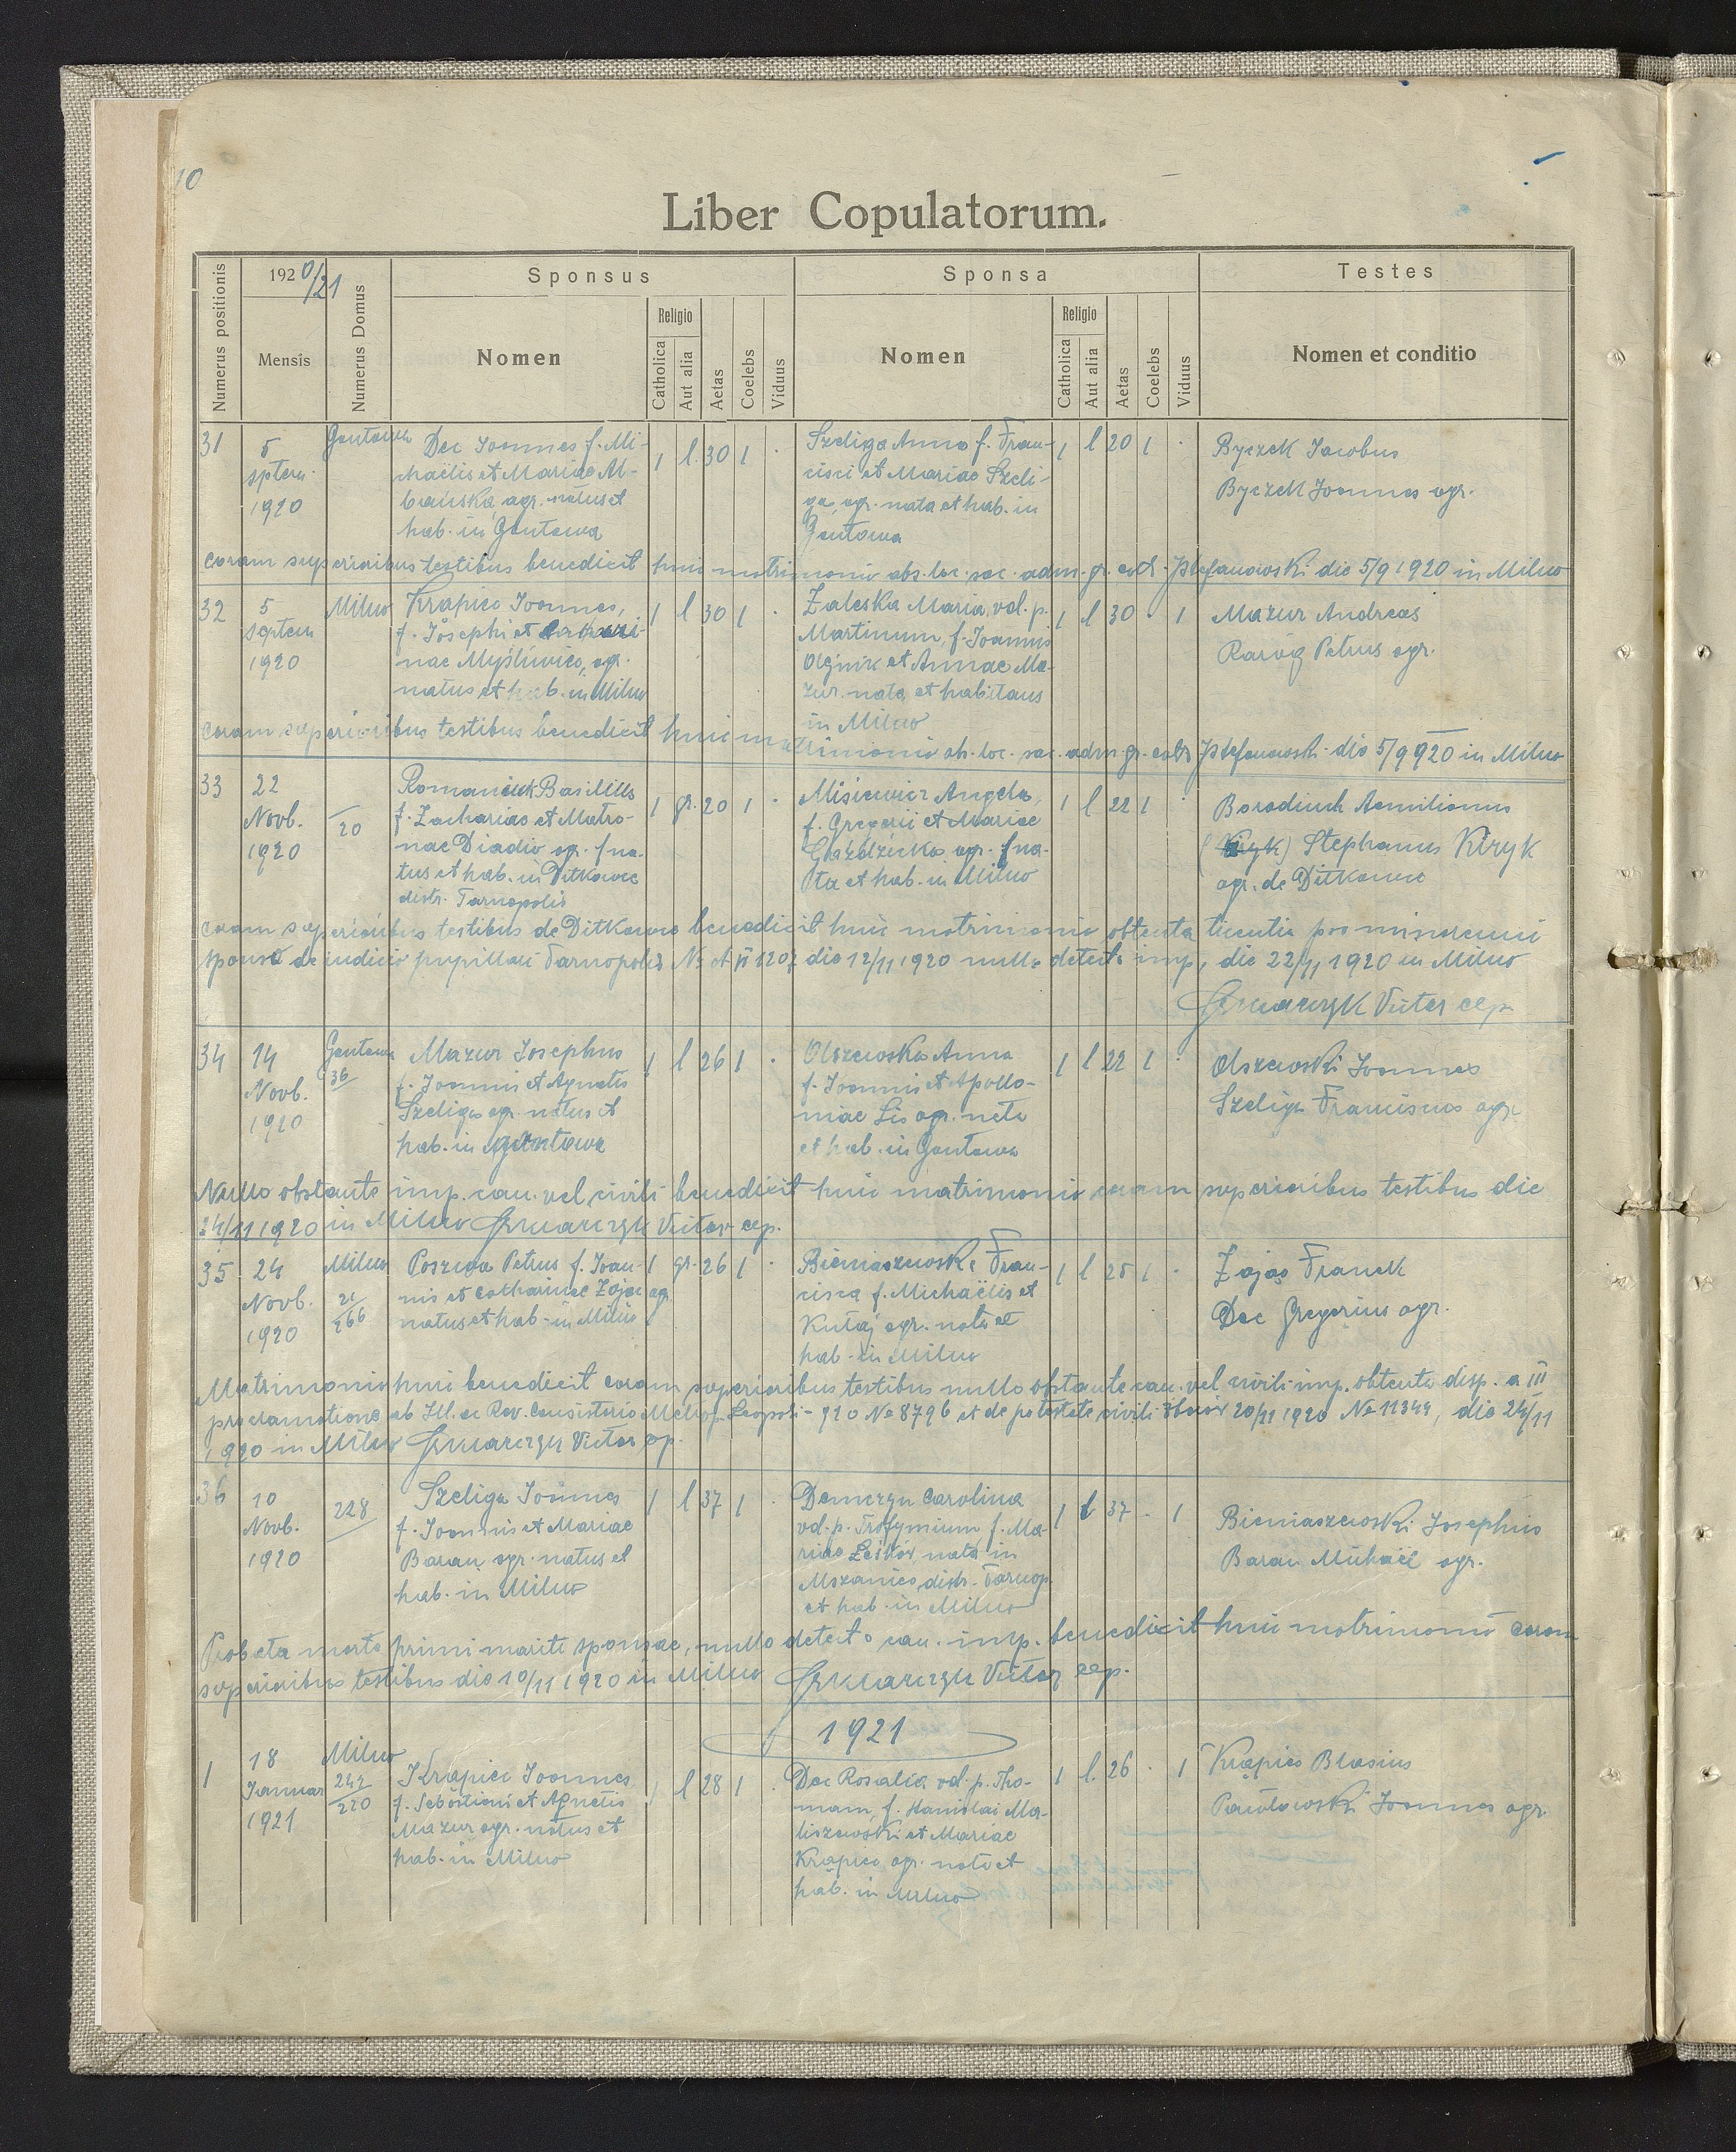 10
Liber Copulatorum.
Numerus positionis
1920/21
Mensis
Numerus Domus
Sponsus
Nomen
Religio
Catholica
Aut alia
Aetas
Coelebs
Viduus
Sponsa
Nomen
Religio
Catholica
Aut alia
Aetas
Coelebs
Viduus
Testes
Nomen et conditio
31 5 Gontowa Dec Joannes f. Mi- 1 l. 30 1 . Szeliga Anna f. Fran- 1 l 20 1 . Byczek Jacobus
septem. chaëlis et Mariae Al- cisci et Mariae Szeli- Byczek Joannes agr.
1920 bańska, agr. natus et ga, agr. nata et hab. in
hab. in Gontowa Gontowa
coram superioribus testibus benedicit huic matrimonio abs. loc. sac. adm. gr. cath. Jstefanowski die 5/9 1920 in Milno
32 5 Milno Krąpiec Joannes, 1 l 30 1 . Zaleska Maria, vd. p. 1 l 30 . 1 Mazur Andreas
septem f. Josephi et Martinum, f. Joannis Petrus agr.
1920 nae Myśliwiec, agr. Olejnik et Annae Ma-
natus et hab. in Milno zur. nata et habitans
in Milno
coram superioribus testibus benedicit huic matrimonio ab. loc. sac. adm. gr. cath Jstefanowski die 5/9 920 in Milno
33 22 20 Romaniuk Basilius 1 gr. 20 1 . Misiewicz Angela, 1 l 22 1 . Borodiuk Aemilianus
Novb. f. Zachariae et Matro- f. Gregorii et Mariae Stephanus Kiryk
1920 nae Diadio agr. (na- agr. (na- agr. de Ditkowce
tus et hab. in Ditkowce ta et hab. in Milno
distr. Tarnopolis
coram superioribus testibus de Ditkowce benedicit huic matrimonio obtenta licentia pro minorenni
sponso de iudicio pupillari Tarnopolis No 1207 die 12/11 1920 nullo detecto imp, die 22/11 1920 in Milno
Szkwarczyk Victor cep.
34 14 Gontowa 36 Mazur Josephus 1 l 26 1 . Olszewska Anna 1 l 22 1 . Olszewski Joannes
Novb. f. Joannis et Agnetis f. Joannis et Apollo- Szeliga Franciscus agr.
1920 Szeliga agr. natus et niae Lis agr. nata
hab. in Gontowa et hab. in Gontowa
Nullo obstante imp. can. vel civili benedicit huic matrimonio coram superioribus testibus die
14/11 1920 in Milno Szkwarczyk Victor cep.
35 24 Milno 266 Poszwa Petrus f. Joan- 1 gr. 26 1 . Bieniaszewska Fran- 1 l 25 1 . Zając Franek
Novb. nis et Catharinae Zając agr. cisca f. Michaëlis et Dec Gregorius agr.
1920 natus et hab. in Milno Kutaj agr. nata et
hab. in Milno
Matrimonio huic benedicit coram superioribus testibus nullo obstante can. vel civili imp. obtenta disp. a III
proclamatione ab Ill. ac Rev. Consistorio Metrop. Leopoli - 920 No 8796 et de potestate civili Zborow 20/11 1920 No 11344, die 24/11
1920 in Milno Szkwarczyk Victor cp.
36 10 228 Szeliga Joannes 1 l 37 1 . Demczyn Carolina 1 l 37 . 1 Bieniaszewski Josephus
Novb. f. Joannis et Mariae vd. p. Trofymium f. Ma- Baran Michaël agr.
1920 Baran, agr. natus et riae Leśków, nata in
hab. in Milno Mszaniec, distr. Tarnop.
et hab. in Milno
Probata morte primi mariti sponsae, nullo detecto can. imp. benedicit huic matrimonio coram
superioribus testibus die 10/11 1920 in Milno Szkwarczyk Victor cep.
1921
1 18 Milno 242/220 Krąpiec Joannes 1 l 28 1 . Dec Rosalia vd. p. Tho- 1 l. 26 . 1 Krąpiec Blasius
Januar f. Sebastiani et Agnetis mam, f. Stanislai Ma- Pawłowski Joannes agr.
1921 Mazur agr. natus et liszewski et Mariae
hab. in Milno Krąpiec agr. nata et
hab. in Milno